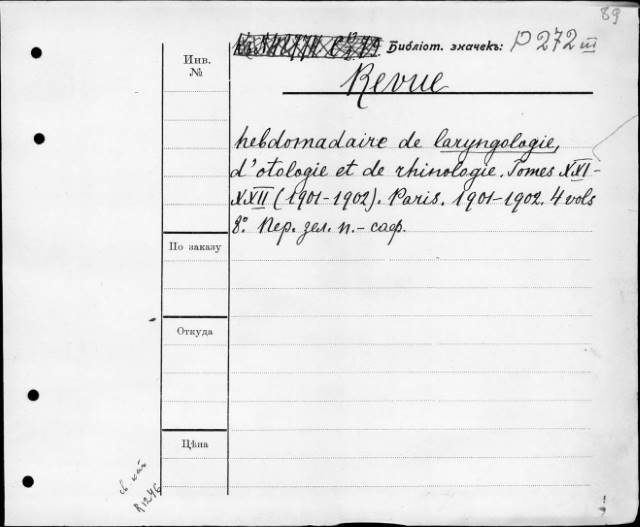 89
Библіот. значекъ: P 272 III
Инв.
№
Revue
hebdomadaire de laryngologie,
d'otologie et de rhinologie. Tomes XXI-
XXII (1901-1902). Paris. 1901-1902. 4 vols
8º. Пер. зел. п.-саф.
По заказу
Откуда
Цѣна